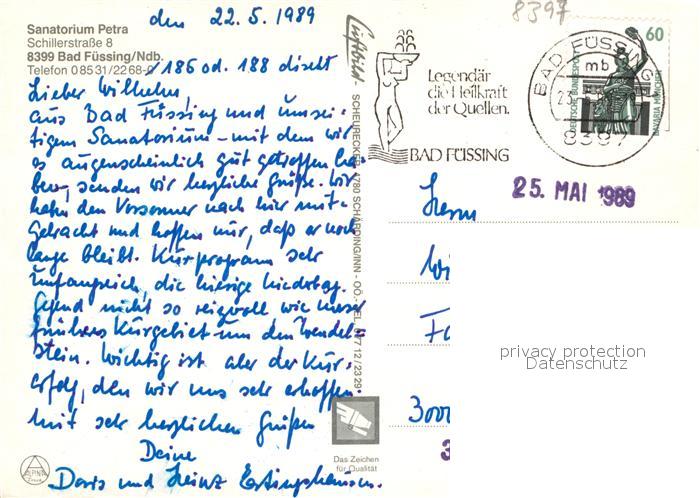 den 22.5.1989
Sanatorium Petra
Schillerstraße 8
8399 Bad Füssing/Ndb.
Telefon 08531/2268-0/186 od. 188 direkt
Lieber Wilhelm,
aus Bad Füssing und unsei-
tigem Sanatorium – mit dem wir
es augenscheinlich gut getroffen ha-
ben, senden wir herzliche Grüße. Wir
haben den Vorsommer nach hier mit-
gebracht und hoffen nur, daß er noch
lange bleibt. Kurprogramm sehr
umfangreich, die hiesige niederbay.
Gegend nicht so reizvoll wie unser
früheres Kurgebiet um den Wendel-
stein. Wichtig ist aber der Kur-
erfolg, den wir uns sehr erhoffen.
Mit sehr herzlichen Grüßen
Deine
Doris und Heinz
Luftbild - SCHEURECKER 4780 SCHÄRDING/INN - OÖ. - TEL. 07712/2329
Das Zeichen
für Qualität
ALPINA
DRUCK
8397
Legendär
die Heilkraft
der Quellen.
BAD FÜSSING
BAD FÜSSING
mb
8397
60
DEUTSCHE BUNDESPOST
BAVARIA MÜNCHEN
25. MAI 1989
Herrn
Wi
Fa
3000
3
privacy protection
Datenschutz